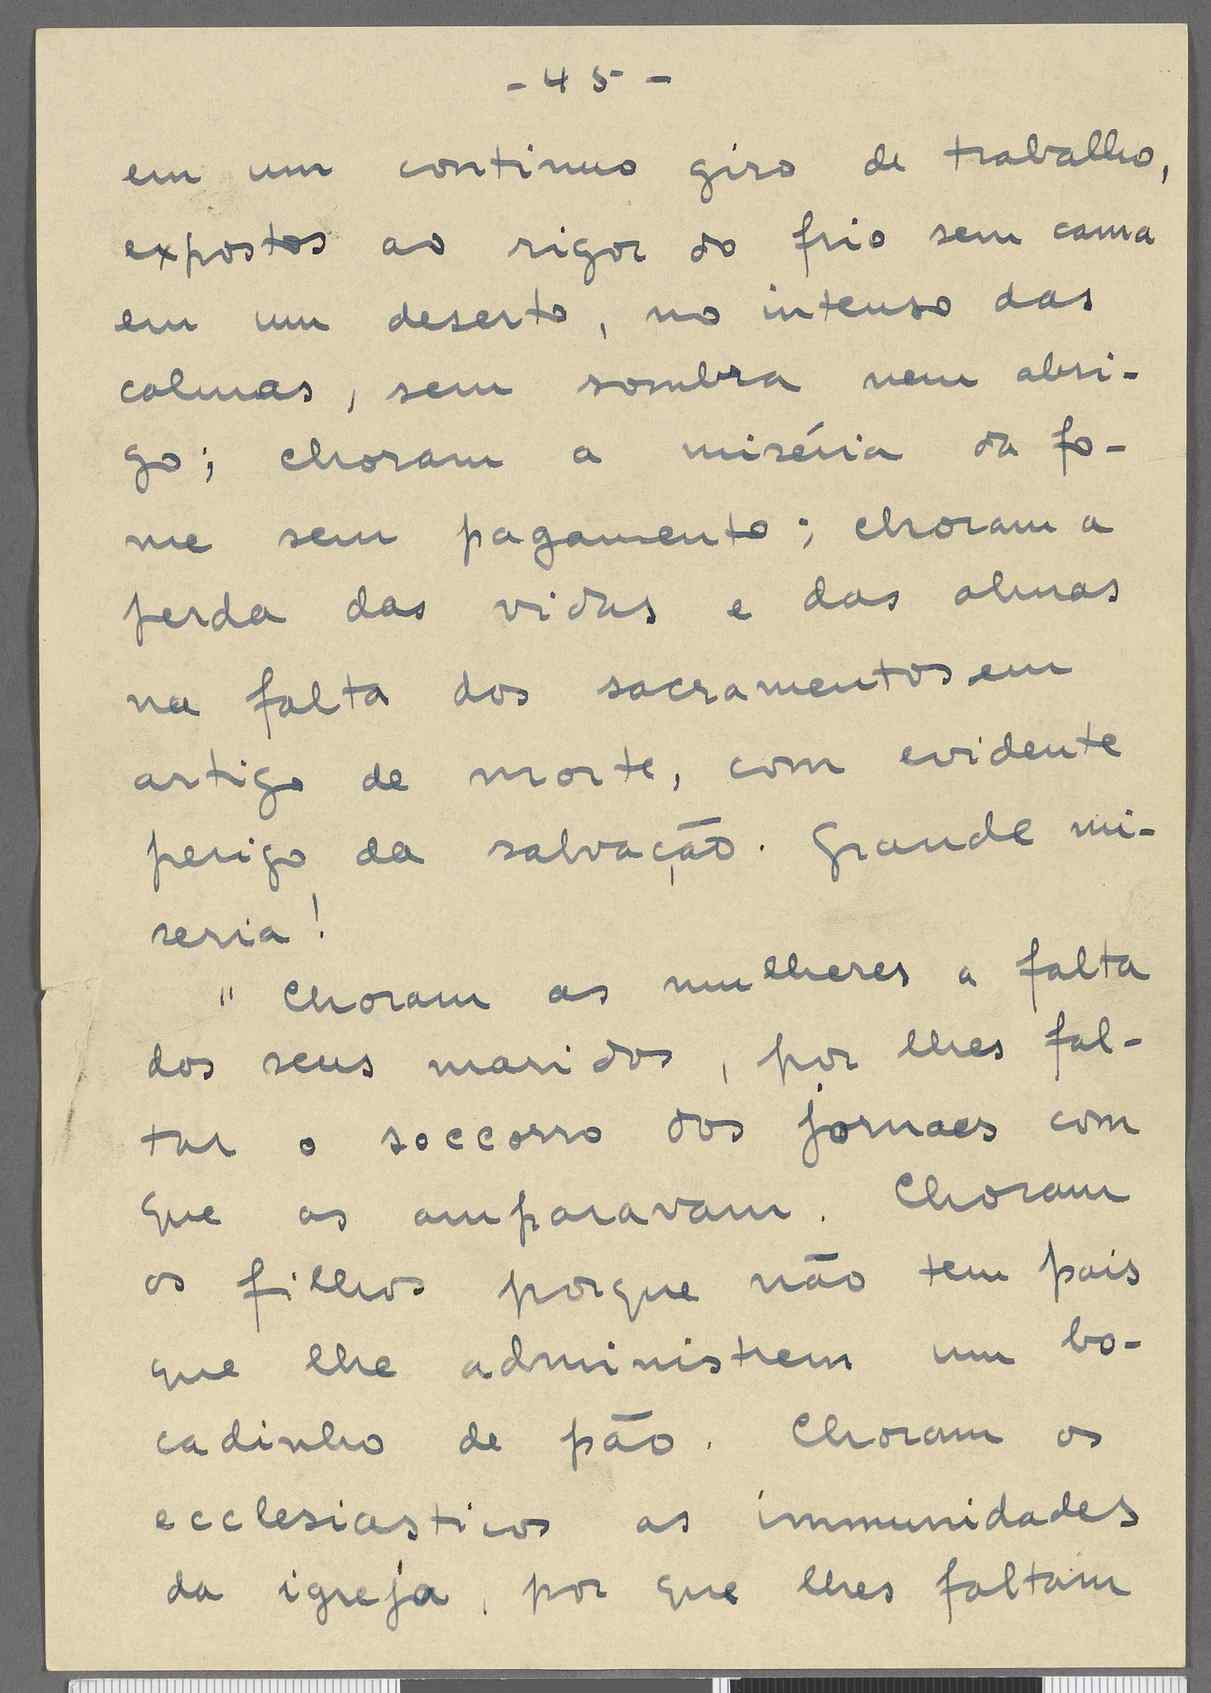 - 45 -
em um continuo giro de trabalho,
expostos ao rigor do frio sem cama
em um deserto, no intenso das
calmas, sem sombra nem abri-
go; choram a miséria da fo-
me sem pagamento; choram a
perda das vidas e das almas
na falta dos sacramentos em
artigo de morte, com evidente
perigo da salvação. Grande mi-
seria!
" Choram as mulheres a falta
dos seus maridos, por lhes fal-
tar o soccorro dos jornaes com
que as amparavam. Choram
os filhos porque não tem pais
que lhe administrem um bo-
cadinho de pão. Choram os
ecclesiasticos as immunidades
da igreja, por que lhes faltam